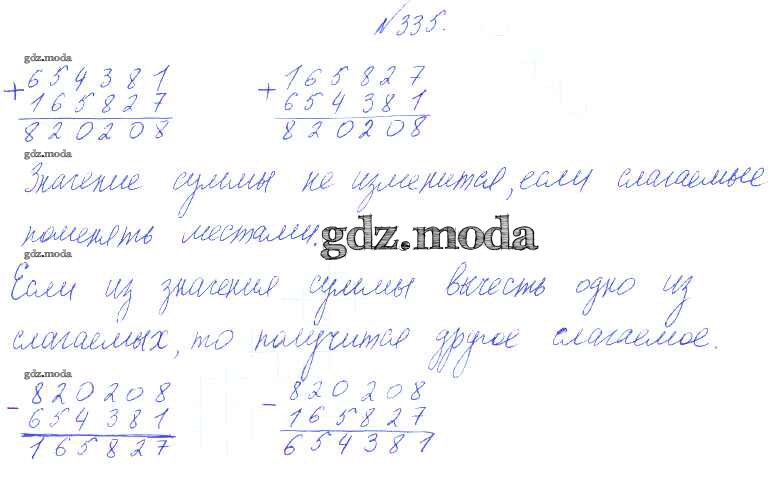 N 335.
gdz.moda
+ 654381 + 165827
165827 654381
820208 820208
gdz.moda
Значение суммы не изменится, если слагаемые
поменять местами.
gdz.moda
gdz.moda
Если из значения суммы вычесть одно из
слагаемых, то получится другое слагаемое.
gdz.moda
- 820208 - 820208
654381 165827
165827 654381